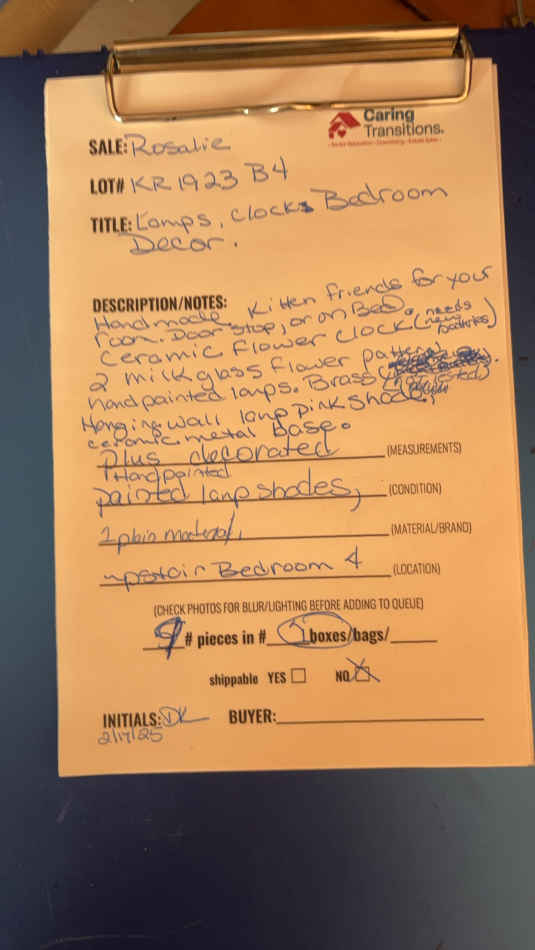 Caring
Transitions.
SALE: Rosalie
LOT# KR 1923 B4
TITLE: Lamps, clocks Bedroom
Decor.
DESCRIPTION/NOTES:
Handmade Kitten friends for your
room. Door stop, or on Bed.
Ceramic Flower Clock (needs
new batteries)
2 milkglass flower pattern
hand painted lamps. Brass
Hanging wall lamp pink shade,
ceramic metal base.
plus decorated (MEASUREMENTS)
1 Hand painted
painted lamp shades, (CONDITION)
1 plain material, (MATERIAL/BRAND)
upstair Bedroom 4 (LOCATION)
(CHECK PHOTOS FOR BLUR/LIGHTING BEFORE ADDING TO QUEUE)
9 # pieces in # 1 boxes/bags/
shippable YES NO
INITIALS: DK BUYER:
2/17/25